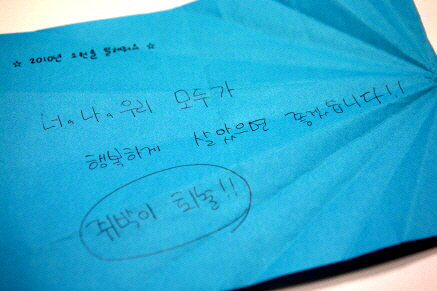 ☆ 2010년 소원을 말해줘요 ☆
너。나。우리 모두가
행복하게 살았으면 좋겠습니다!!
쥐박이 퇴출!!